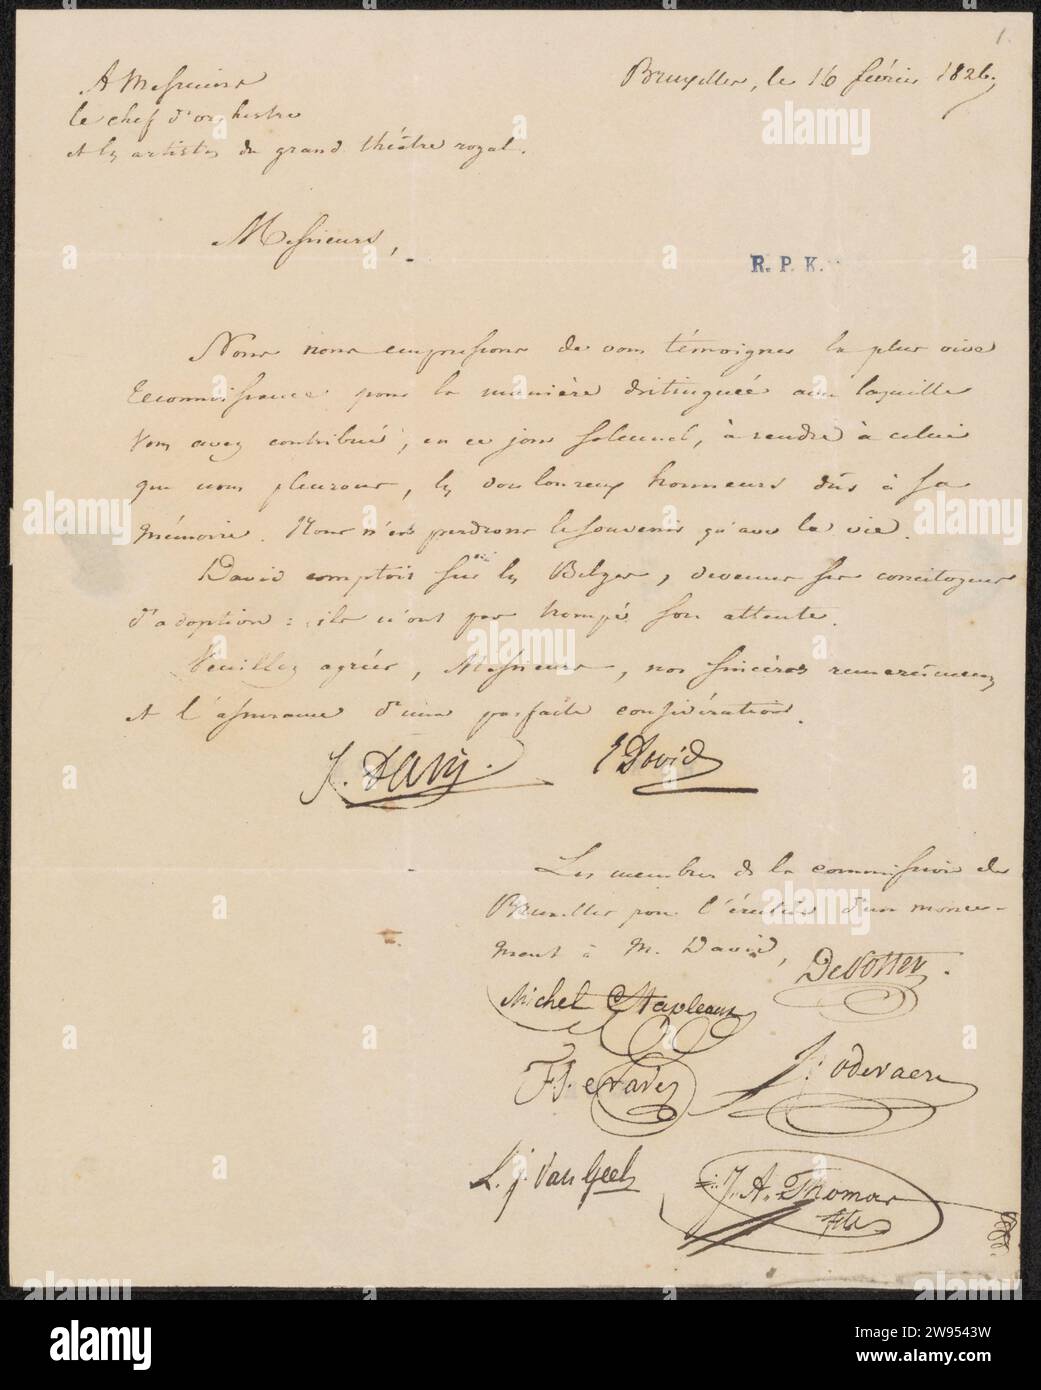 1.
A Messieurs
Bruxelles, le 16 février 1826,
le chef d'orchestre
et les artistes du grand théâtre royal.
Messieurs,
R. P. K.
Nous nous empressons de vous témoigner la plus vive
reconnoissance pour la manière distinguée avec laquelle
vous avez contribué, en ce jour solennel, à rendre à celui
que nous pleurons, les douloureux honneurs dûs à sa
mémoire. Nous n'en perdrons le souvenir qu'avec la vie.
David comptoit sur les Belges, devenus ses concitoyens
d'adoption: ils n'ont pas trompé son attente.
Veuillez agréer, Messieurs, nos sincères remercîmens
et l'assurance d'une parfaite considération.
J. David.
E David
Les membres de la commission de
Bruxelles pour l'érection d'un monu-
ment à M. David,
DePotter.
Michel Stapleaux
F. J. Navez
J. Odevaere
L. J. Van Geel
J. A. Thomas
fils
alamy
Image ID: 2W9543W
www.alamy.com